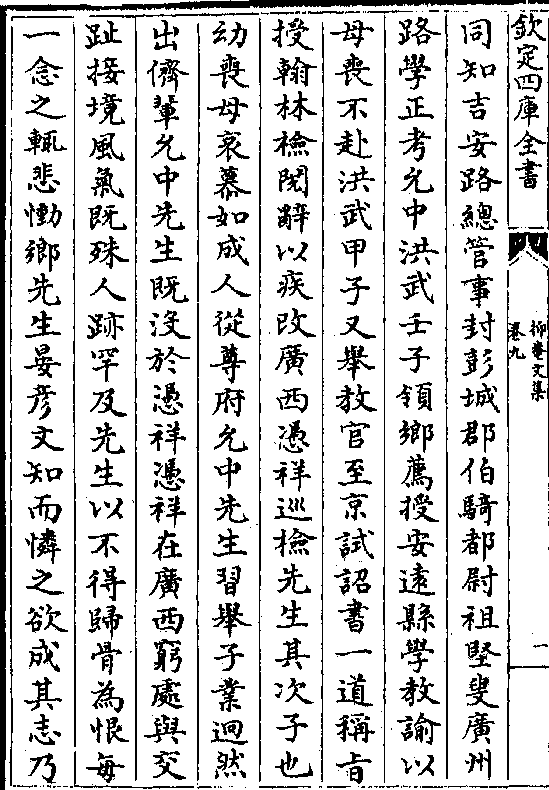 欽定四庫全書
抑菴文集
卷九
一
同知吉安路總管事封彭城郡伯騎都尉祖堅叟廣州
路學正考允中洪武壬子領鄉薦授安遠縣學教諭以
母喪不赴洪武甲子又舉教官至京試詔書一道稱旨
授翰林檢閱辭以疾改廣西憑祥巡檢先生其次子也
幼喪母哀慕如成人從尊府允中先生習舉子業迥然
出儕輩允中先生既沒於憑祥憑祥在廣西窮處與交
趾接境風氣既殊人跡罕及先生以不得歸骨為恨每
一念之輒悲慟鄉先生晏彦文知而憐之欲成其志乃